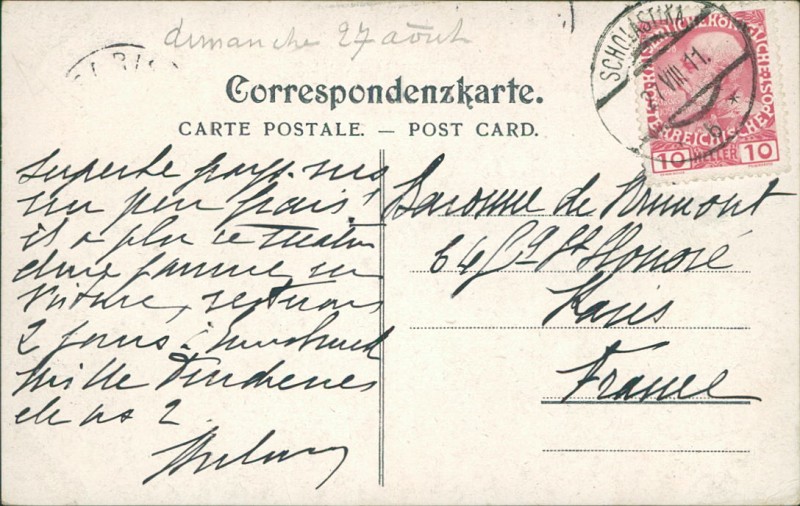 dimanche 27 août
PARIS
SCHOLASTIKA
27 VIII 11.
* b *
KAISERLICHE KÖNIGLICHE
ÖSTERREICHISCHE POST
10 HELLER 10
Correspondenzkarte.
CARTE POSTALE. — POST CARD.
Superbe pays. mais
un peu frais!
il a plu ce matin
en
voiture, restons
2 jours à Innsbruck
Mille tendresses
de ns 2
Baronne de
64 fg St Honoré
Paris
France